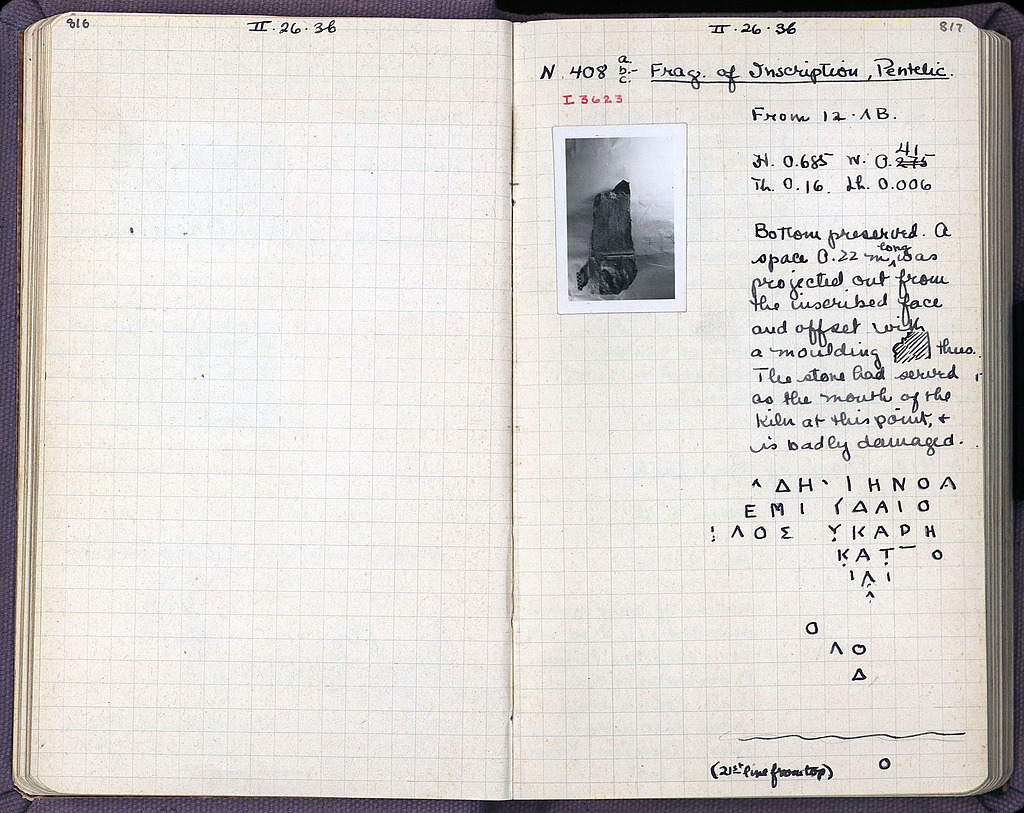 816
II · 26 · 36
II · 26 · 36
817
N 408 a. b.- c. Frag. of Inscription, Pentelic.
I 3623
From 12 · ΛB.
H. 0.685 W. 0.275 41
Th. 0.16. Lh. 0.006
Bottom preserved. A
space 0.22 m long was
projected out from
the inscribed face
and offset with
a moulding thus.
The stone had served
as the mouth of the
kiln at this point, +
is badly damaged.
^ Δ Η ` Ι Η Ν Ο Λ
Ε Μ Ι Υ Δ Α Ι Ο
Λ Ο Σ Υ̣ Κ Α Ρ Η
Κ̣ Α Τ̣ ¯ Ο
Ι Λ Ι
^
Ο
Λ Ο
Δ
(21st line from top) Ο